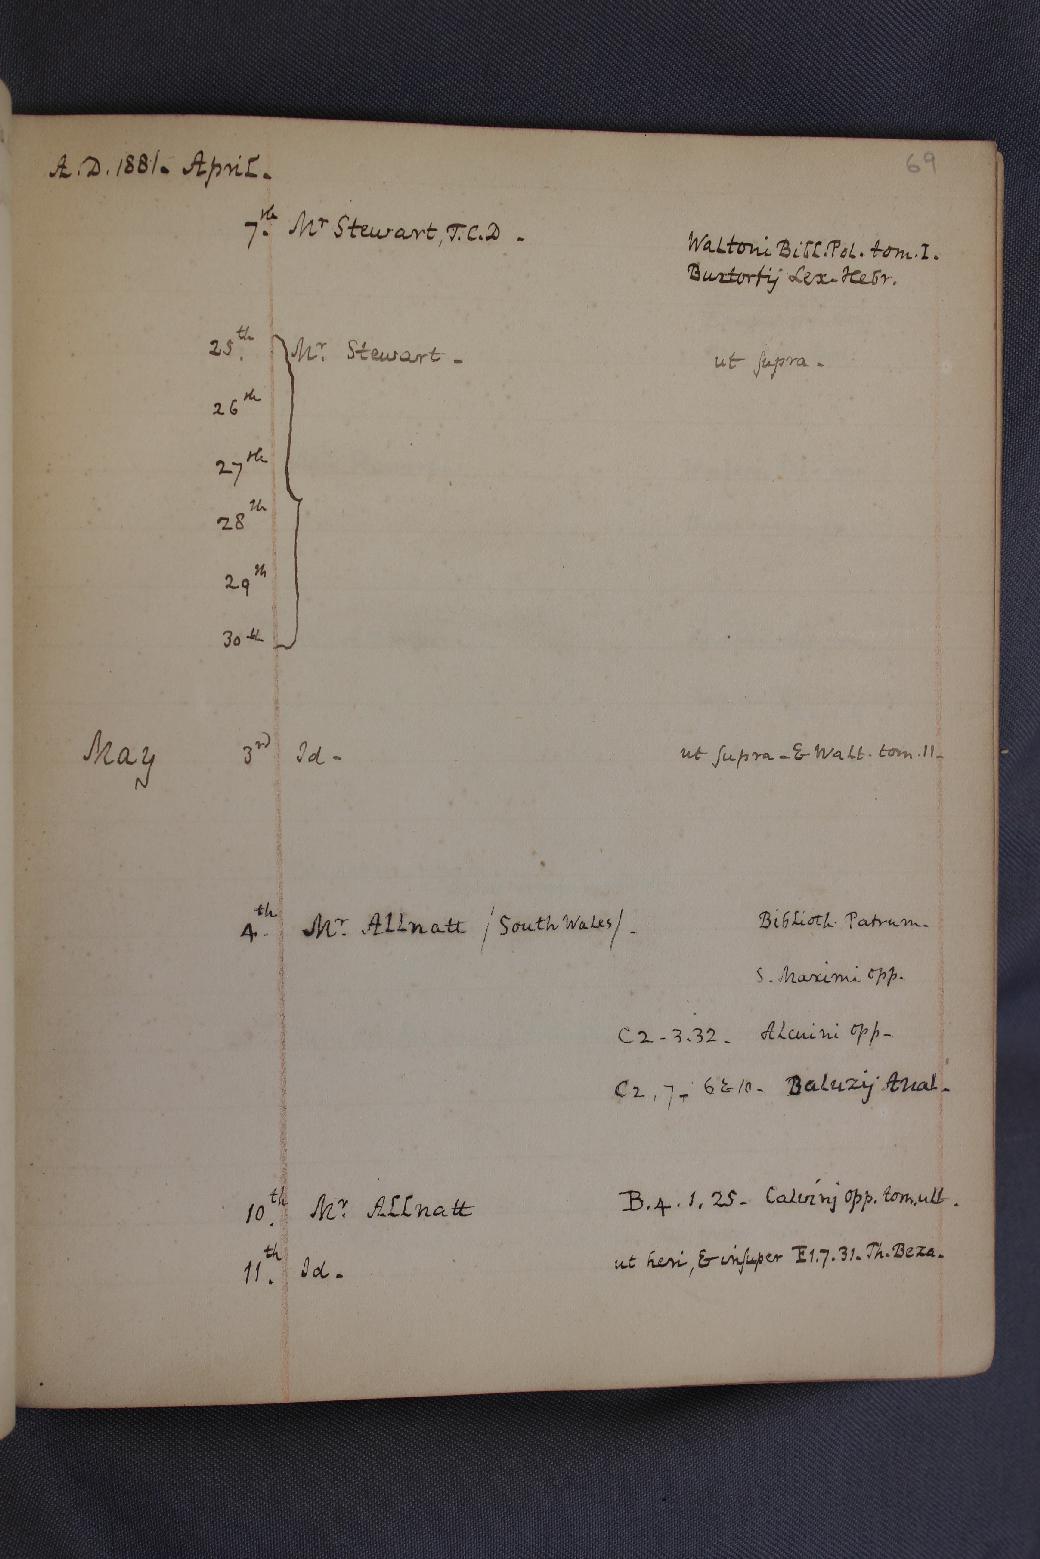 A.D. 1881. April.
69
7th. Mr Stewart, T.C.D.
Waltoni Bibl. Pol. tom. I.
Buxtorfij Lex. Hebr.
25th. Mr. Stewart.
ut supra.
26th
27th
28th
29th
30th
May 3rd Id. ut supra. & Walt. tom. II.
4th. Mr. Allnatt /South Wales/. Biblioth. Patrum.
S. Maximi opp.
C2.3.32. Alcuini opp.
C2.7. 6 & 10. Baluzij Anal.
10th. Mr. Allnatt B.4.1.25. Calvinj opp. tom. ult.
11th. Id. ut heri, & insuper E1.7.31. Th. Beza.